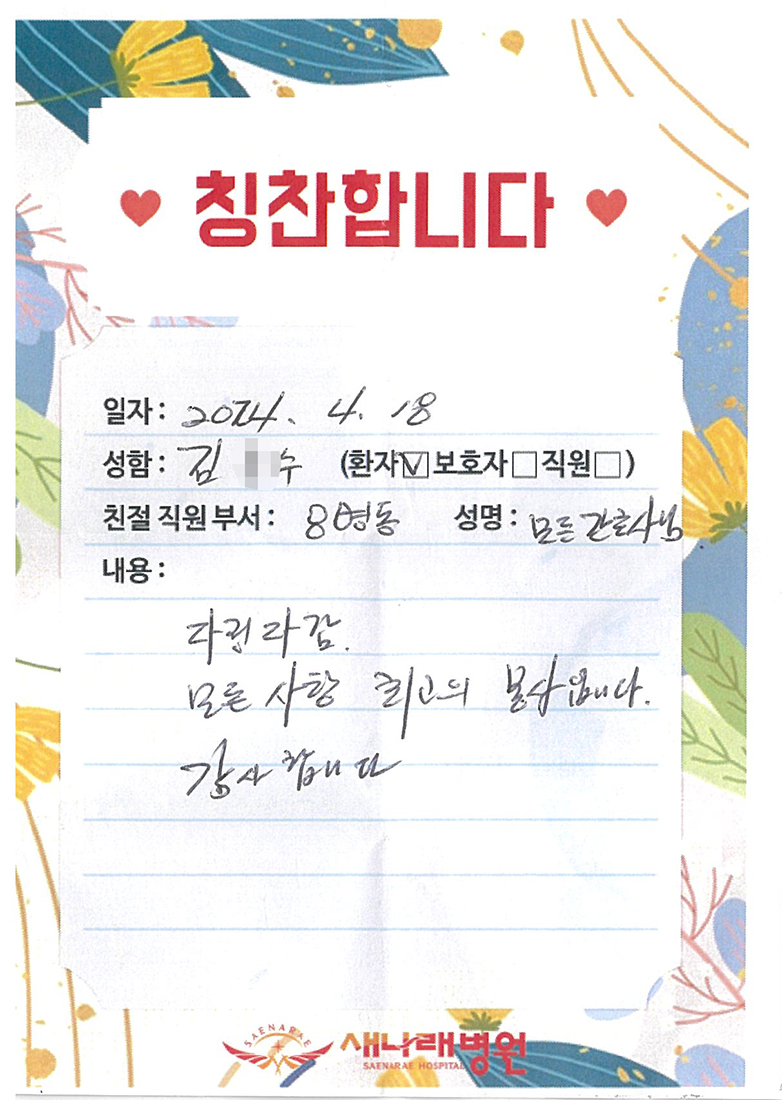 칭찬합니다
일자 : 2024. 4. 18
성함 : 김 수 (환자☑보호자□직원□)
친절 직원 부서 : 8병동 성명 : 모든 간호사님
내용 :
다정다감.
모든 사항 최고의 봉사입니다.
감사합니다
SAENARAE
새나래병원
SAENARAE HOSPITAL